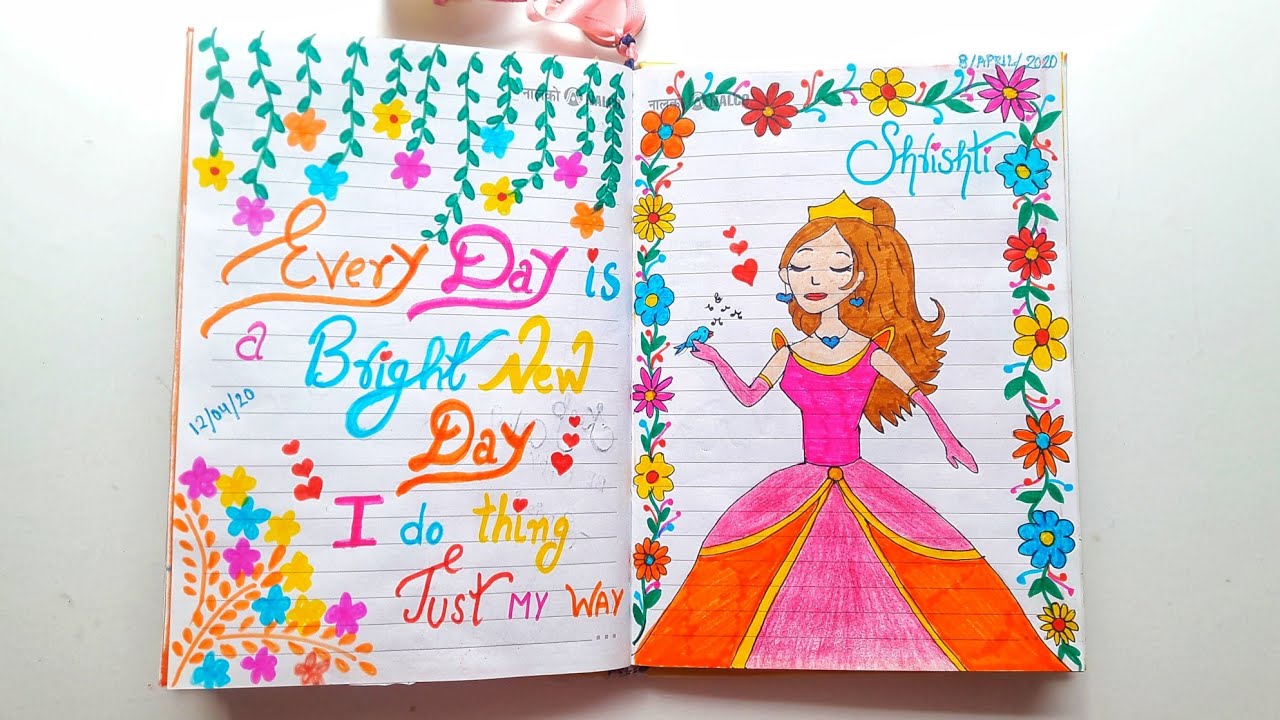 नालको NALCO
Every Day is
a Bright New
12/04/20
Day
I do thing
Just my way
...
8/APRIL/2020
नालको NALCO
Shrishti